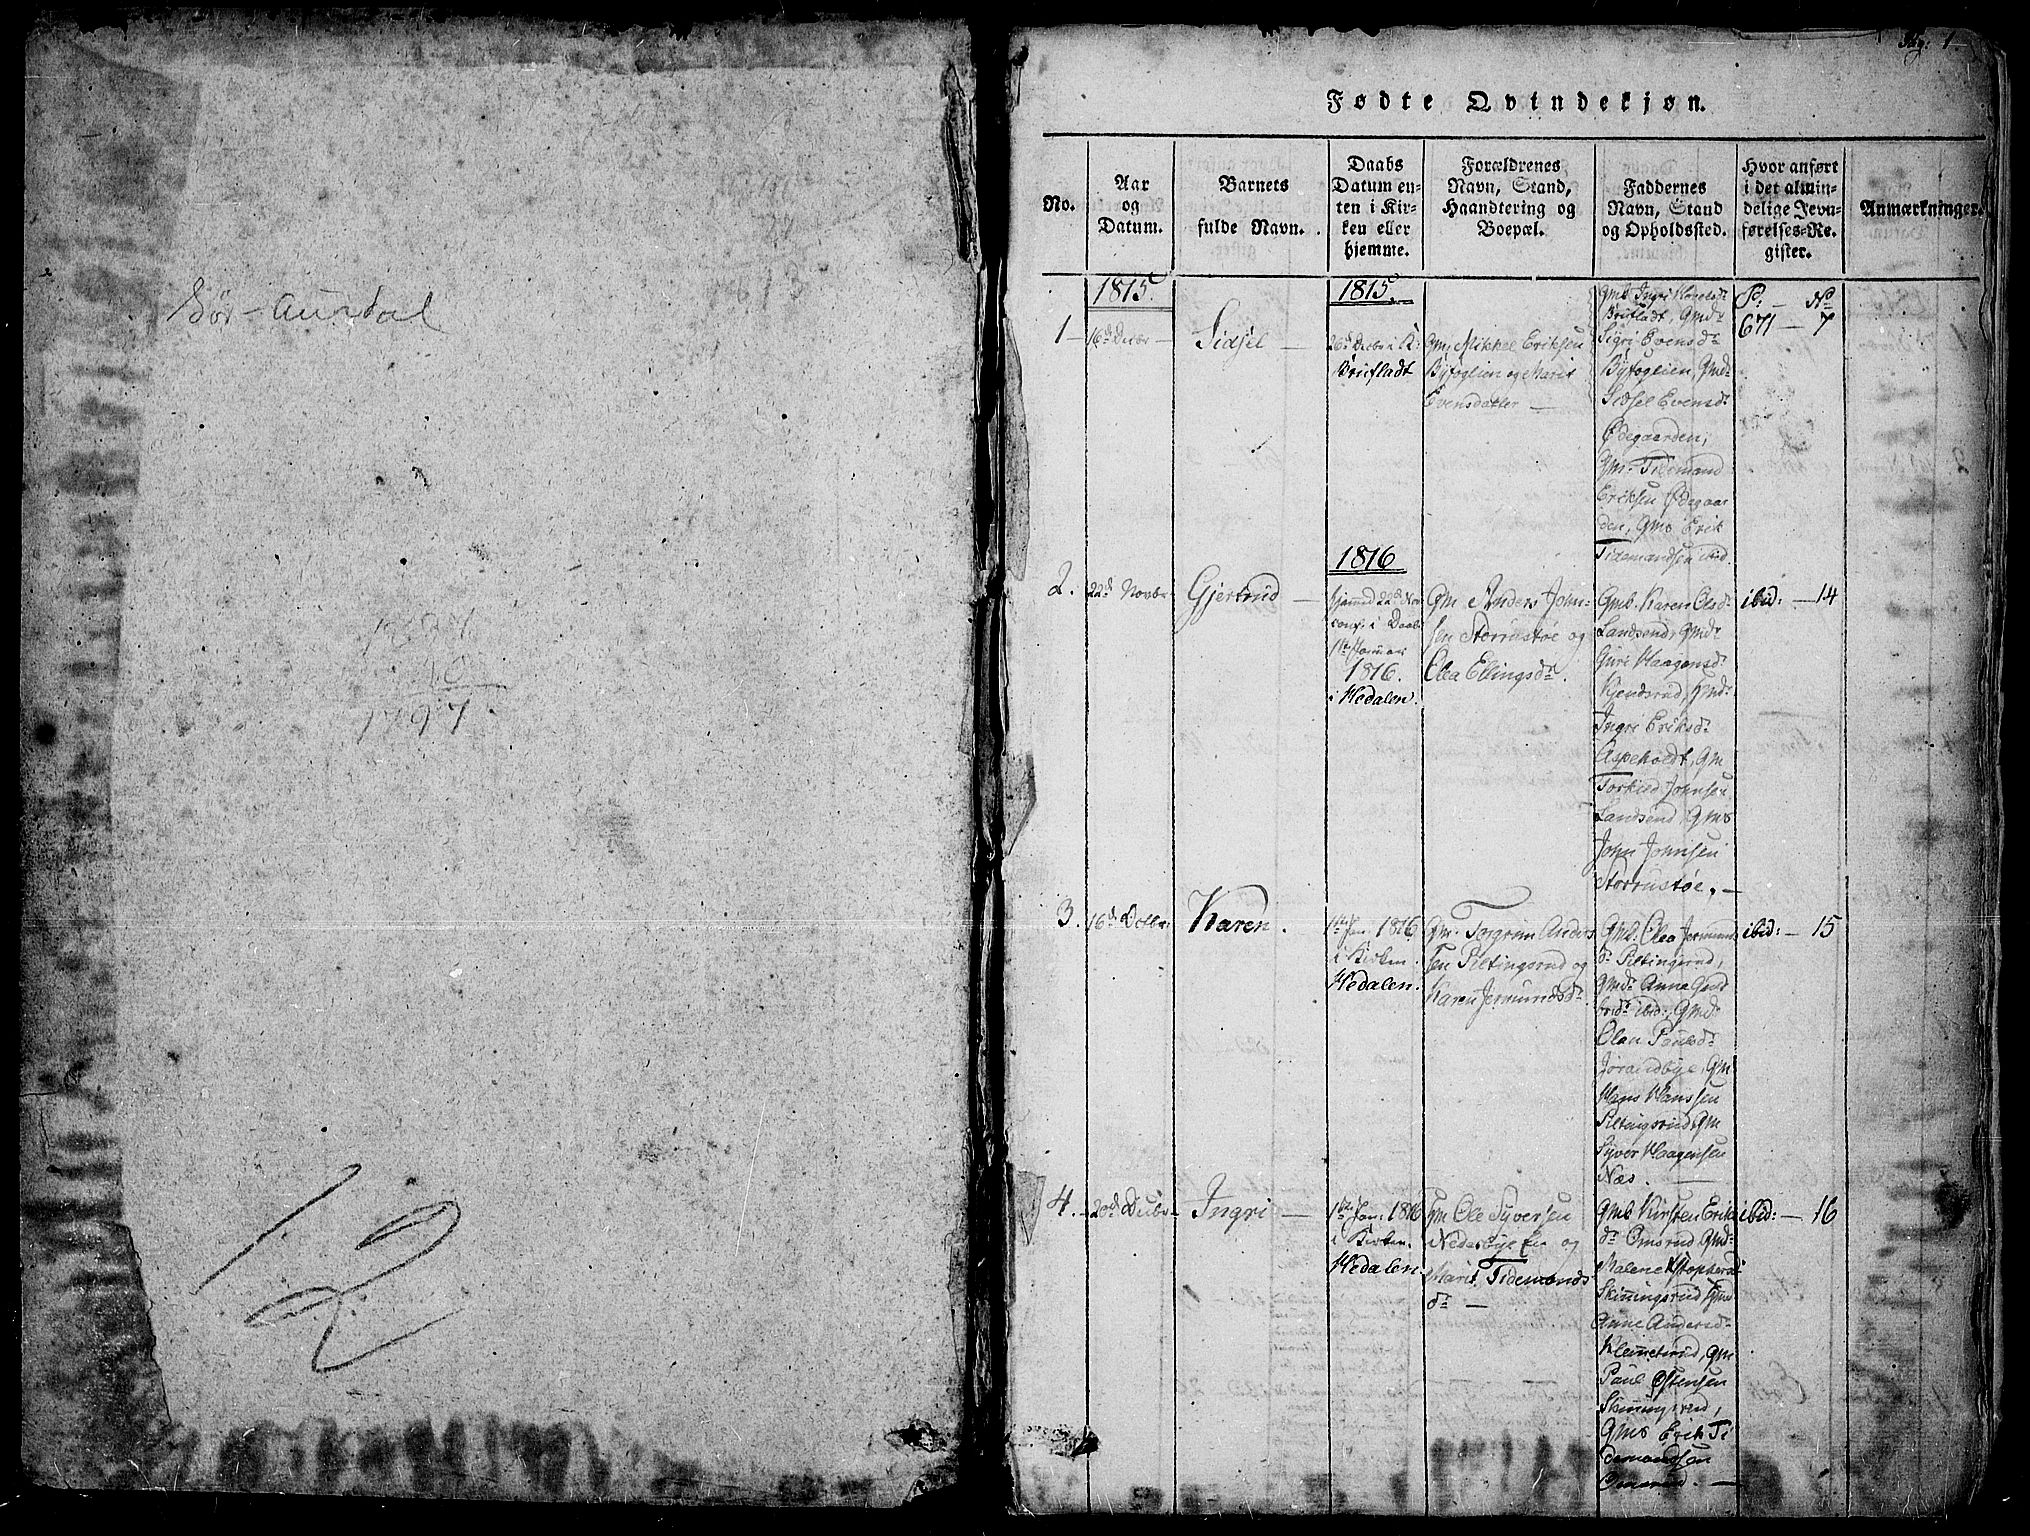 Sør-Aurdal
1797
12
Pag: 1
Fødte Qvindekjøn.
No.
Aar
og
Datum.
Barnets
fulde Navn.
Daabs
Datum en-
ten i Kir-
ken eller
hjemme.
Forældrenes
Navn, Stand,
Haandtering og
Boepæl.
Faddernes
Navn, Stand
og Opholdssted.
Hvor anført
i det almin-
delige Jevn-
førelses-Re-
gister.
Anmærkninger.
1815.
1
16d Decbr
Sidsel
1815.
26d Decbr i K:
Brufladt
Gm. Mikkel Eriksen
Byfoglien og Marit
Evensdatter
Gmb Ingri
Brufladt, Gmdr
Sigri Evensdr
Byfoglien, Gmdr
Sidsel Evensdr
Ødegaarden,
Gm. Tidemand
Eriksen Ødegaar
den, Gms Erik
Tidemandsen ibid.
P. — No
671 — 7
2.
22d Novbr
Gjertrud
1816
hjemmed 22d Nov
conf: i Daab
1te Januar
1816.
i Hedalen.
Gm Anders John-
sen Storrustøe og
Olea Ellingsdr.
Gmb. Karen Olsdr
Landsend, Gmdr
Guri Haagensdr
Kjendsrud, Gmdr
Ingri Eriksdr
Aspeholdt, Gm
Torkild Johnsen
Landsend, Gms
John Johnsen
Storrustøe.
ibid: — 14
3.
16d
Karen.
1te Jan: 1816
i Kirken
Hedalen.
Gm. Torgrim Anders
sen Piltingsrud og
Karen Jermundsdr
Gmb. Olea Jermunds
dr Piltingsrud,
Gmdr Anne Gud
brdr ibid:, Gmdr
Olau Paulsdr
Jørandbye, Gm
Hans Hanssen
Piltingsrud, Gm
Syver Haagensen
Næs.
ibid: — 15
4.
20d
Ingri
1te Jan: 1816
i Kirken.
Hedalen.
Gm Ole Syversen
Nederbye En og
Marit Tidemands
dr
Gmb Kirsten Eriks
dr Omsrud, Gmdr
Malene
Skinningsrud, Gmdr
Anne Andersdr
Klemmetsrud, Gm
Paul Østensen
Skinningsrud,
Gms Erik Ti
demandsen
Omsrud.
ibid: — 16